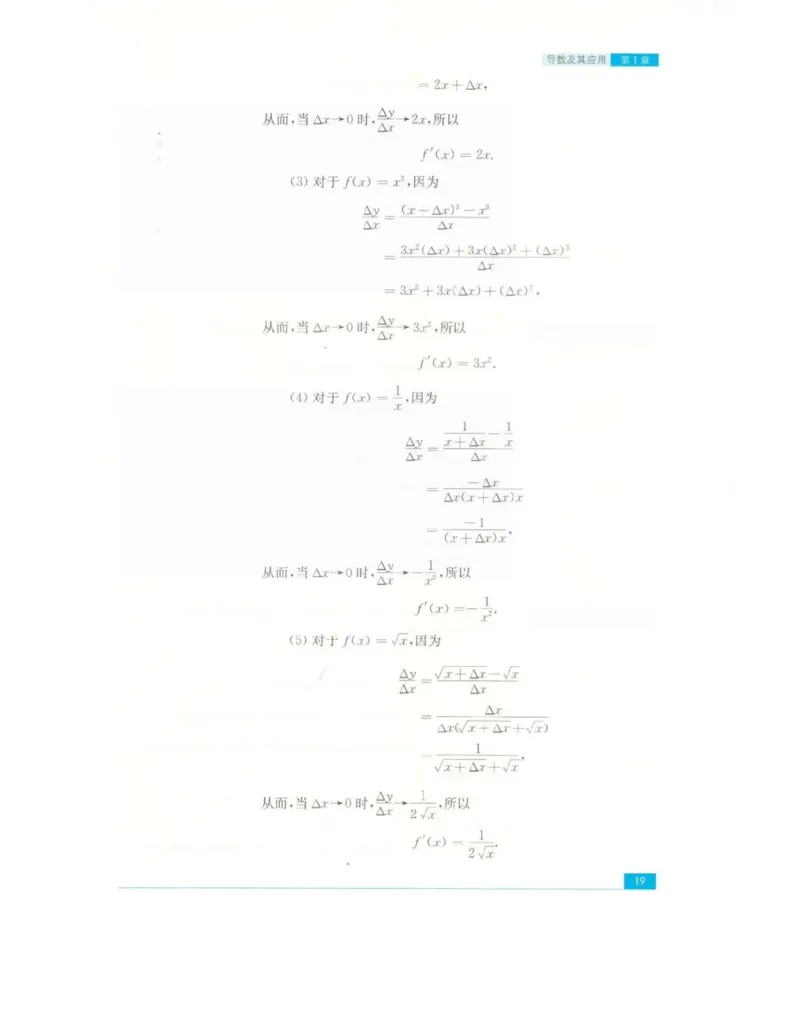 导数及其应用 第1章
= 2x + Δx,
从而,当 Δx→0 时, Δy/Δx → 2x,所以
f′(x) = 2x.
(3) 对于 f(x) = x³,因为
Δy/Δx = ((x + Δx)³ − x³)/Δx
= (3x²(Δx) + 3x(Δx)² + (Δx)³)/Δx
= 3x² + 3x(Δx) + (Δx)²,
从而,当 Δx→0 时, Δy/Δx → 3x²,所以
f′(x) = 3x².
(4) 对于 f(x) = 1/x,因为
Δy/Δx = (1/(x + Δx) − 1/x)/Δx
= −Δx/(Δx(x + Δx)x)
= −1/((x + Δx)x),
从而,当 Δx→0 时, Δy/Δx → −1/x²,所以
f′(x) = −1/x².
(5) 对于 f(x) = √x,因为
Δy/Δx = (√(x + Δx) − √x)/Δx
= Δx/(Δx(√(x + Δx) + √x))
= 1/(√(x + Δx) + √x),
从而,当 Δx→0 时, Δy/Δx → 1/(2√x),所以
f′(x) = 1/(2√x).
19